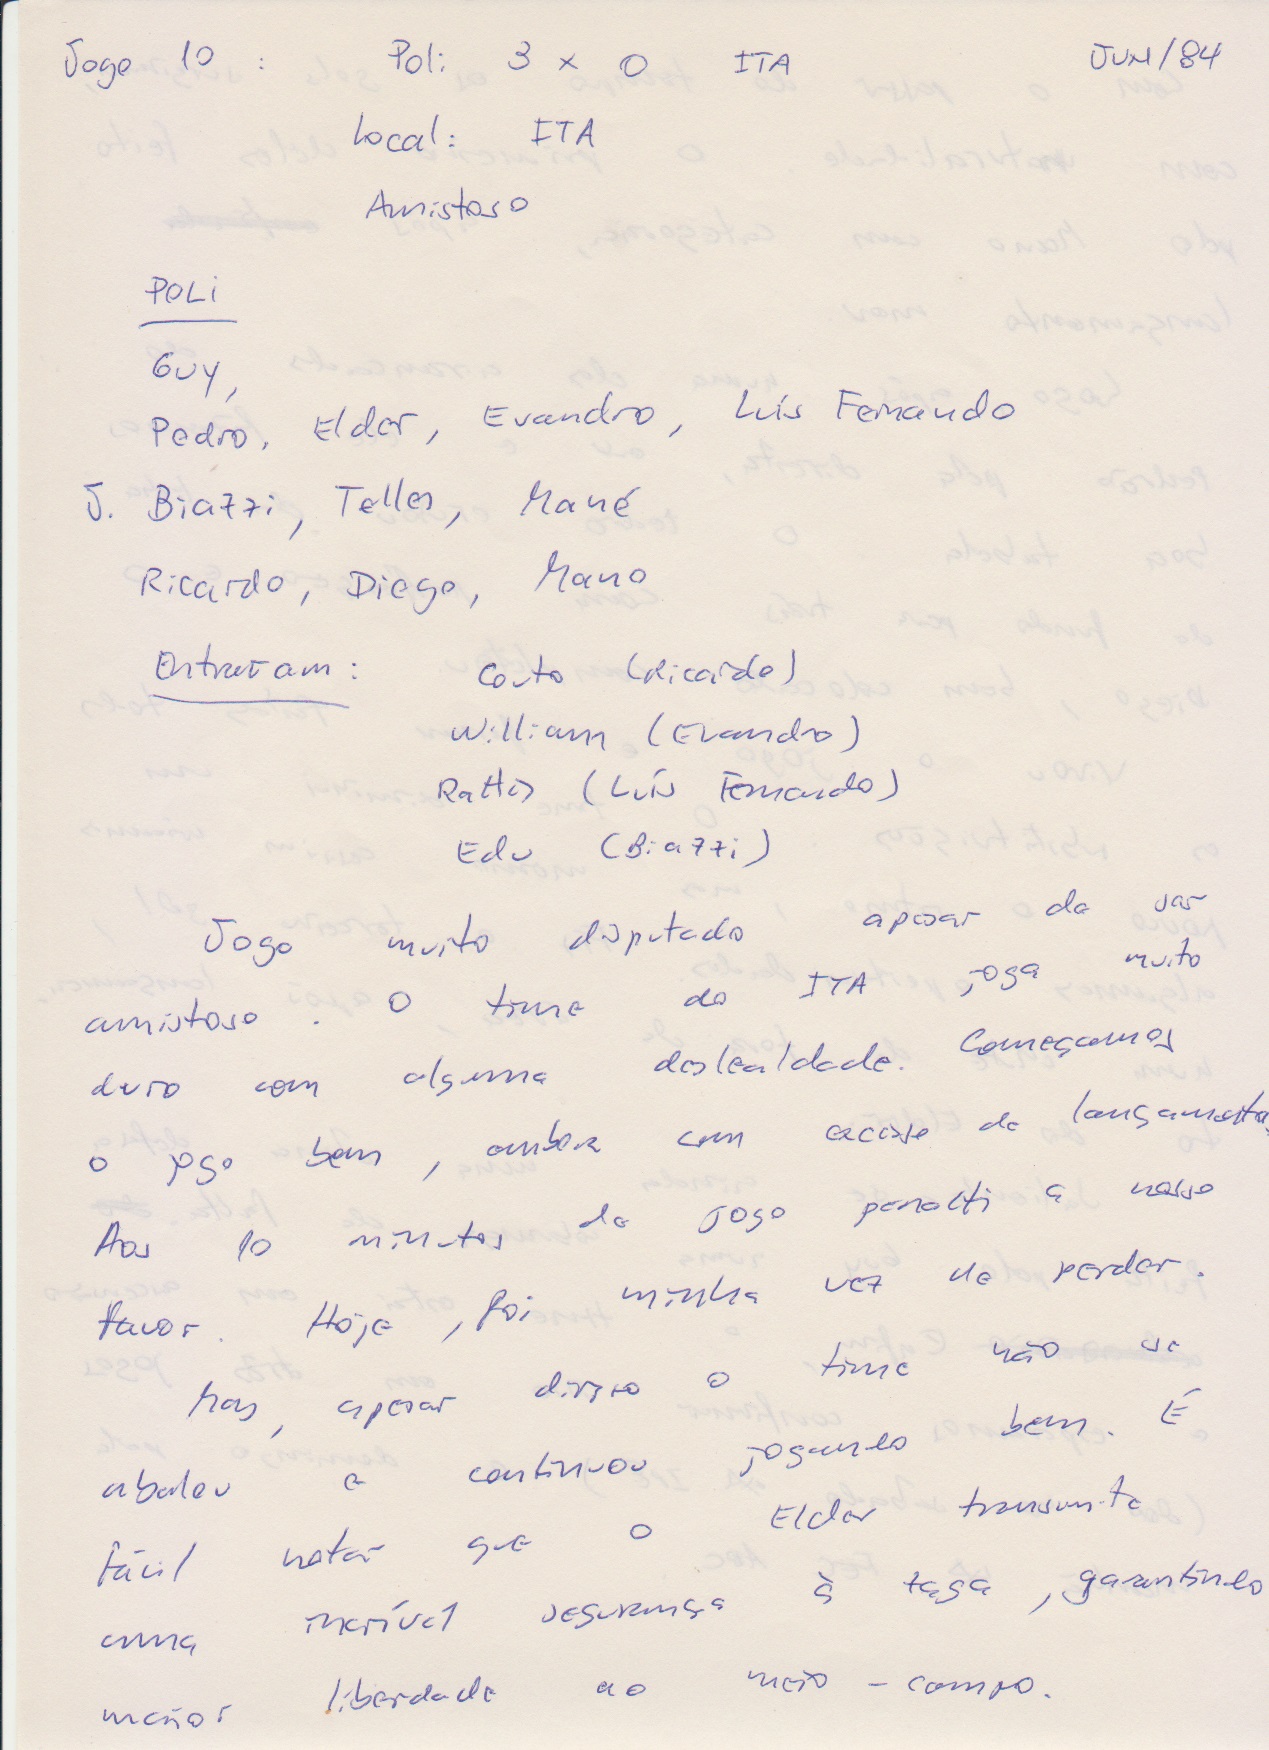 Jogo 10 : Poli 3 x 0 ITA JUN/84
Local: ITA
Amistoso
POLI
Guy,
Pedro, Elder, Evandro, Luís Fernando
J. Biazzi, Telles, Mané
Ricardo, Diego, Mano
Entraram : Couto (Ricardo)
William (Evandro)
Rattis (Luís Fernando)
Edu (Biazzi)
Jogo muito disputado apesar de ser
amistoso. O time do ITA joga muito
duro com alguma deslealdade. Começamos
o jogo bem, embora com excesso de lançamentos
Aos 10 minutos de jogo penalti a nosso
favor. Hoje, foi minha vez de perder.
Mas, apesar disso o time não se
abalou e continuou jogando bem. É
fácil notar que o Elder transmite
uma incrível segurança à zaga, garantindo
maior liberdade ao meio-campo.